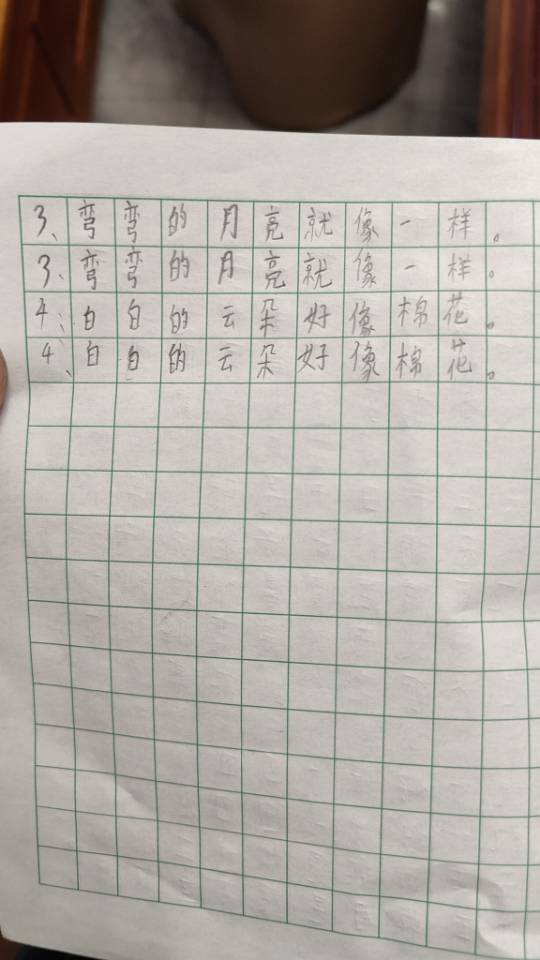 3、弯弯的月亮就像一样。
3、弯弯的月亮就像一样。
4、白白的云朵好像棉花。
4、白白的云朵好像棉花。